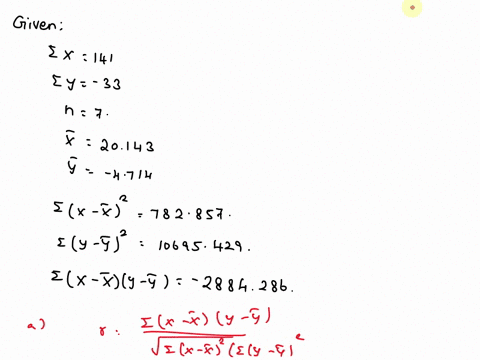 Given:
Σx = 141
Σy = -33
n = 7.
x̄ = 20.143
ȳ = -4.714
Σ(x-x̄)² = 782.857.
Σ(y-ȳ)² = 10695.429.
Σ(x-x̄)(y-ȳ) = -2884.286.
a) r: Σ(x-x̄)(y-ȳ) / √Σ(x-x̄)²(Σ(y-ȳ)²